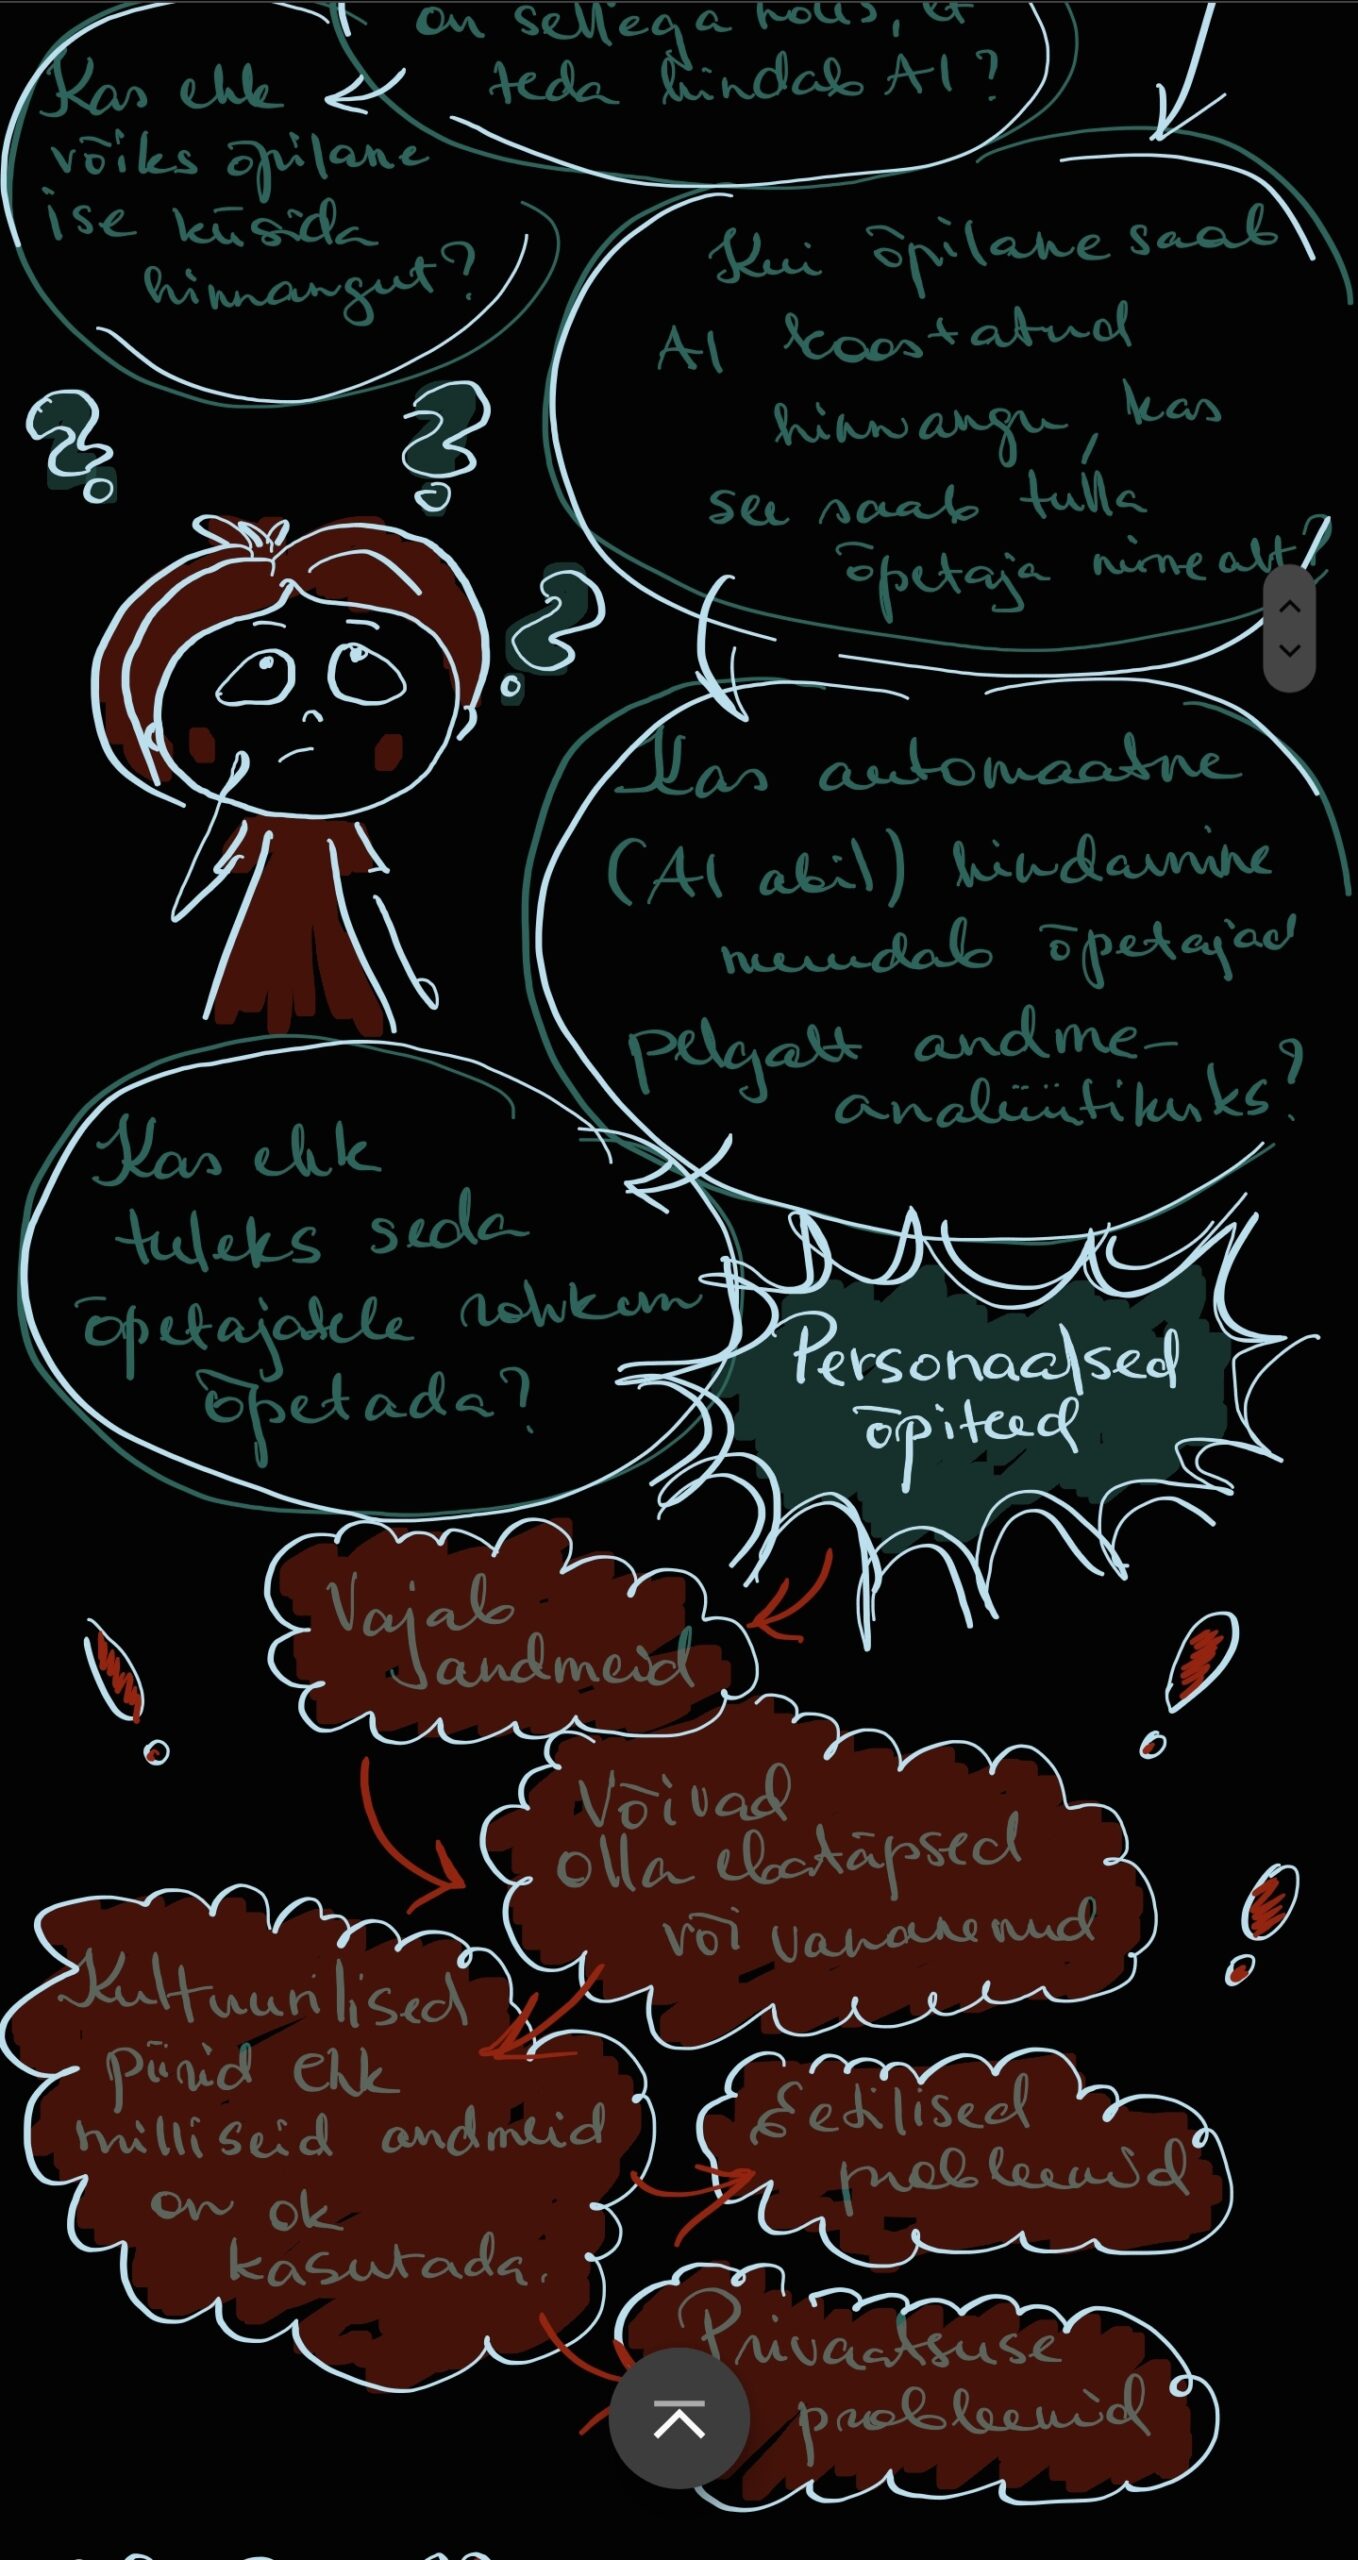 on sellega nõus, et
teda hindab AI?
Kas ehk
võiks õpilane
ise küsida
hinnangut?
Kui õpilane saab
AI koostatud
hinnangu, kas
see saab tulla
õpetaja nime alt?
Kas automaatne
(AI abil) hindamine
muudab õpetajad
pelgalt andme-
analüütikuks?
Kas ehk
tuleks seda
õpetajatele rohkem
õpetada?
Personaalsed
õpiteed
Vajab
andmeid
Võivad
olla ebatäpsed
või vananenud
Kultuurilised
piirid ehk
milliseid andmeid
on ok
kasutada.
Eetilised
probleemid
Privaatsuse
probleemid